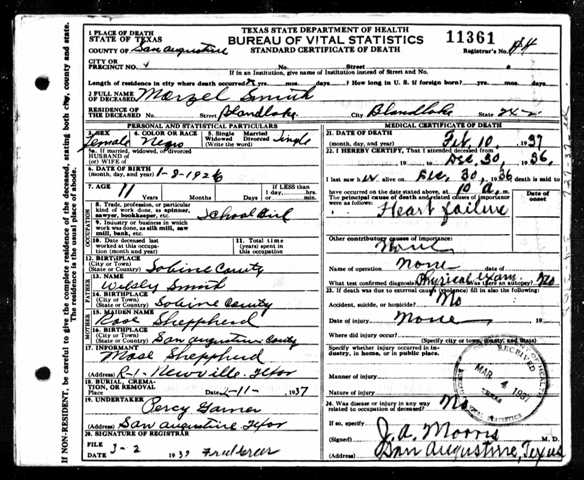 TEXAS STATE DEPARTMENT OF HEALTH
BUREAU OF VITAL STATISTICS
STANDARD CERTIFICATE OF DEATH
11361
Registrar's No.
1 PLACE OF DEATH
STATE OF TEXAS
COUNTY OF San Augustine
CITY OR
PRECINCT NO. No. Street
If in an Institution, give name of Institution instead of Street and No.
Length of residence in city where death occurred yrs. mos. days? How long in U. S. if foreign born? yrs. mos. days.
2 FULL NAME
OF DECEASED Morzel Smith
RESIDENCE OF
THE DECEASED No. Street Blandlake City Blandlake State
PERSONAL AND STATISTICAL PARTICULARS
3. SEX
Female
4. COLOR OR RACE
Negro
5. Single Married
Widowed Divorced
(Write the word)
Single
5a. If married, widowed, or divorced
HUSBAND OF
(or) WIFE OF
6. DATE OF BIRTH
(month, day, and year) 1-8-1926
7. AGE 11
Years Months Days
If LESS than
1 day, hrs.
or min.
OCCUPATION
8. Trade, profession, or particular
kind of work done, as spinner,
sawyer, bookkeeper, etc. School Girl
9. Industry or business in which
work was done, as silk mill, saw
mill, bank, etc.
10. Date deceased last
worked at this occupation
(month and year)
11. Total time
(years) spent in
this occupation
12. BIRTHPLACE
(City or Town)
(State or Country) Sabine County
FATHER
13. NAME
Wilsly Smith
14. BIRTHPLACE
(City or Town)
(State or Country) Sabine County
MOTHER
15. MAIDEN NAME
Rose Sheppherd
16. BIRTHPLACE
(City or Town)
(State or Country) San Augustine County
17. INFORMANT
Mose Sheppherd
(Address) R-1-
18. BURIAL, CREMATION,
OR REMOVAL
Place Date 2-11-1937
19. UNDERTAKER
Percy Garner
(Address) San Augustine
20. SIGNATURE OF REGISTRAR
FILE
DATE 3-2 1937
MEDICAL CERTIFICATE OF DEATH
21. DATE OF DEATH
(month, day, and year) Feb 10, 1937
22. I HEREBY CERTIFY, That I attended deceased from
Dec, 30, 1936,
I last saw her alive on Dec, 30, 1936 death is said to
have occurred on the date stated above, at 10 a. m.
The principal cause of death and related causes of importance
were as follows: Date of onset
Heart failure
Other contributory causes of importance:
None
Name of operation none
What test confirmed diagnosis? Physical exam Was there an autopsy? No
23. If death was due to external causes (violence) fill in also the following
Accident, suicide, or homicide? No
Date of injury None 19
Where did injury occur?
(Specify city or town, County, and State)
Specify whether injury occurred in
industry, in home, or in public place.
Manner of injury
Nature of injury
24. Was disease or injury in any way
related to occupation of deceased? No
If so, specify
(Signed) J. A. Morris M. D.
(Address) San Augustine, Texas
RECEIVED
MAR 4 1937
TEXAS